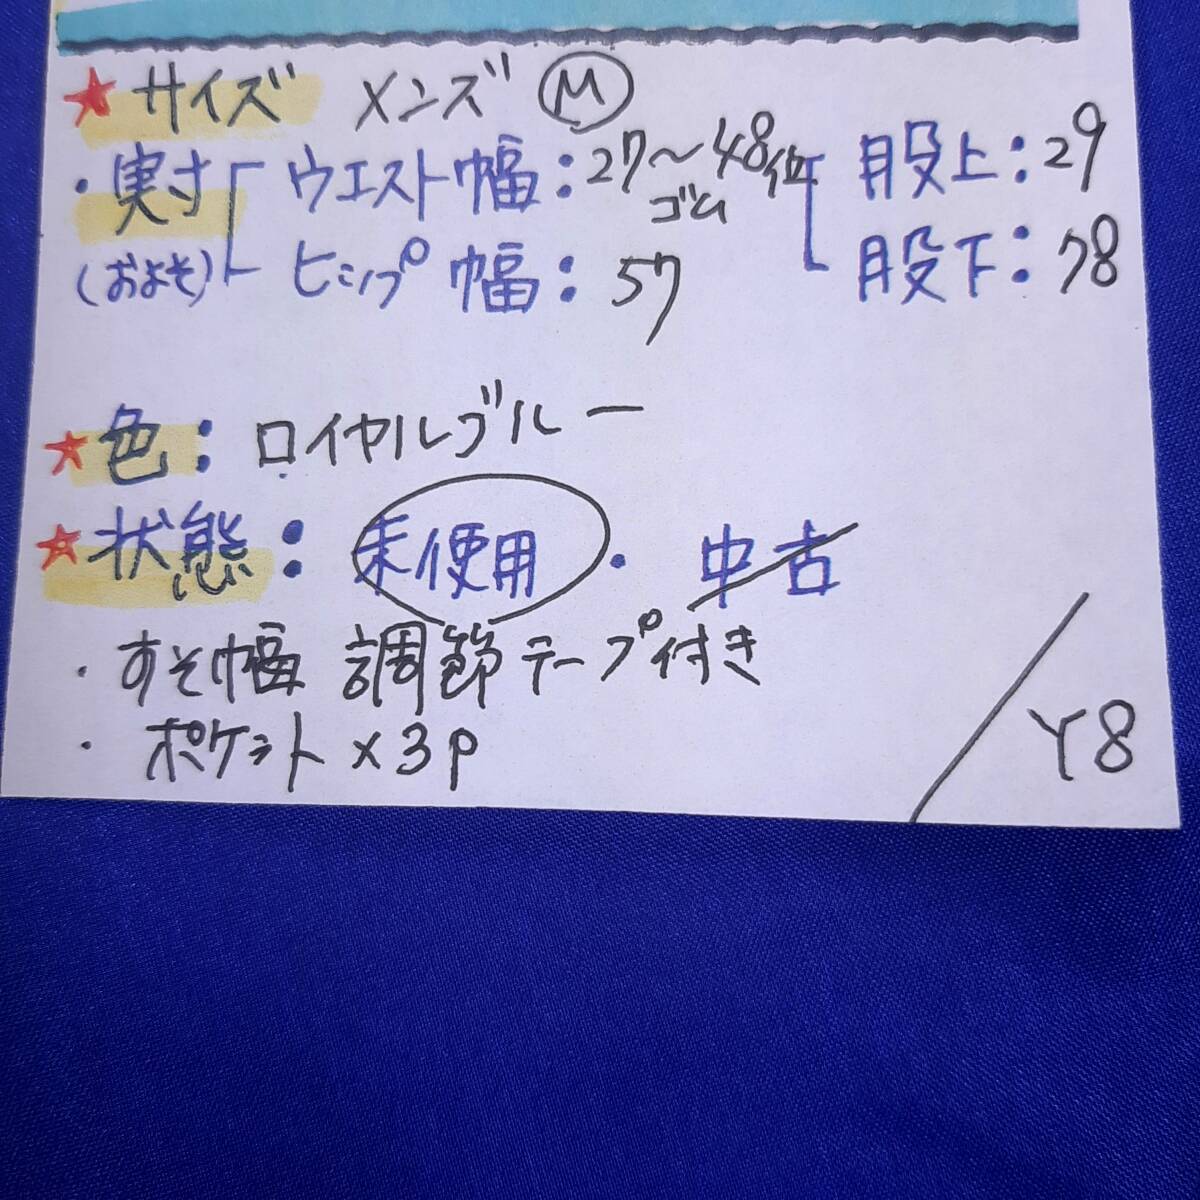 ★サイズ メンズ Ⓜ
・実寸 ウエスト幅：27〜48位 股上：29
ゴム
(およそ) ヒップ幅：57 股下：78
★色：ロイヤルブルー
★状態：未使用・中古
・すそ幅 調節テープ付き
・ポケット×3P
Y8